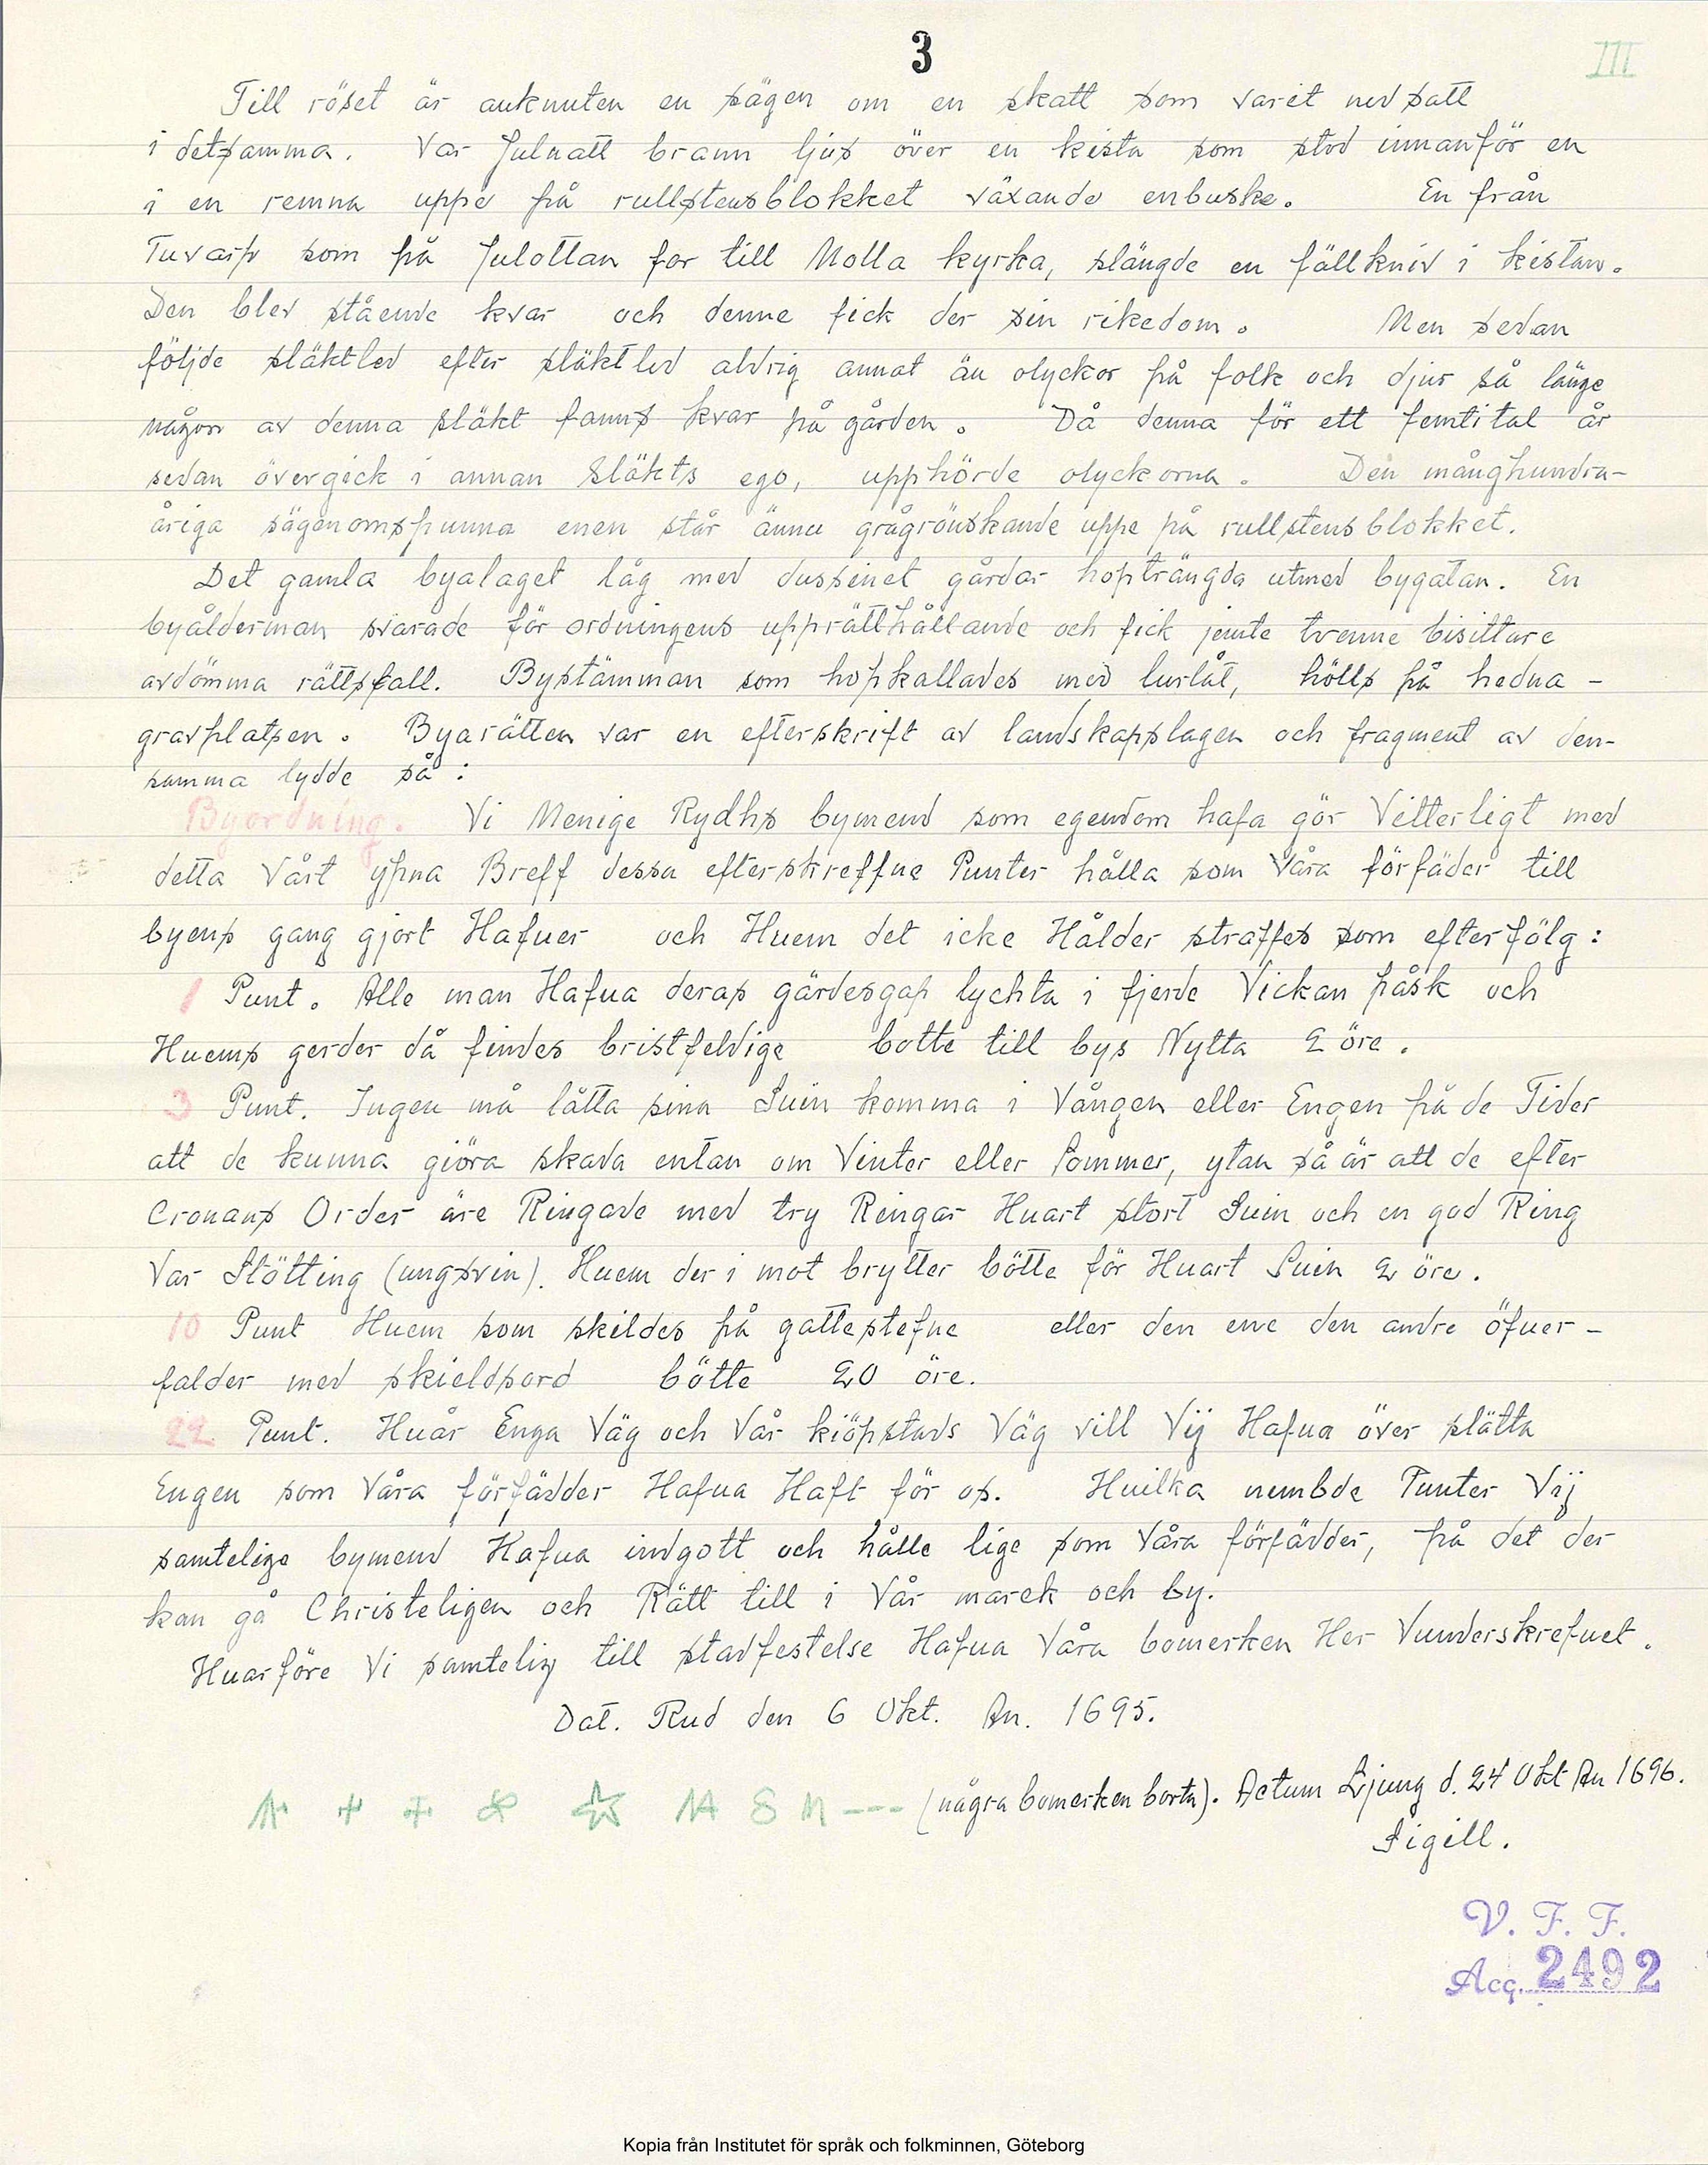 3
III
Till röset är anknuten en sägen om en skatt som varit nedsatt
i detsamma. Var Julnatt brann ljus över en kista som stod innanför en
i en remna uppe på rullstensblokket växande enbuske. En från
Tuvarp som på Julottan for till Molla kyrka, slängde en fällkniv i kistan.
Den blev stående kvar och denne fick der sin rikedom. Men sedan
följde släktled efter släktled aldrig annat än olyckor på folk och djur så länge
någon av denna släkt fanns kvar på gården. Då denna för ett femtital år
sedan övergick i annan släkts ego, upphörde olyckorna. Den månghundra-
åriga sägenomspunna enen står ännu grågrönskande uppe på rullstensblokket.
Det gamla byalaget låg med dussinet gårdar hopträngda utmed bygatan. En
byålderman svarade för ordningens upprätthållande och fick jemte tvenne bisittare
avdömma rättsfall. Bystämman som hopkallades med lurlåt, hölls på hedna-
gravplatsen. Byarätten var en efterskrift av landskapslagen och fragment av den-
samma lydde så:
Byordning. Vi Menige Rydhs bymend som egendom hafa gör Vitterligt med
detta Vårt ypna Breff dessa efterskreffne Punter hålla som Våra förfäder till
byens gang gjort Hafuer och Huem det icke Hålder straffes som efterfölg:
1 Punt. Alle man Hafua deras gärdesgap lychta i fjerde Vickan påsk och
Huems gerder då findes bristfeldige botte till bys Nytta 2 öre.
3 Punt. Ingen må låtta sina Suin komma i Vången eller Engen på de Tider
att de kunna giöra skada entan om Vinter eller Sommer, ytan så är att de efter
Cronans Order äre Ringade med try Ringar Huart stort Suin och en god Ring
Var Stötting (ungsvin). Huem der i mot brytter bötte för Huart Suin 2 öre.
10 Punt Huem som skildes på gattestefne eller den ene den andre öfuer-
falder med skieldsord bötte 20 öre.
22 Punt. Huår Enga Väg och Vår kiöpstads Väg vill Vij Hafua över slätta
Engen som Våra förfädder Hafua Haft för os. Huilka nembde Punter Vij
samtelige bymend Hafua indgått och hålle lige som Våra förfädder, på det der
kan gå Christeligen och Rätt till i Vår marck och by.
Huarföre Vi samtelig till stadfestelse Hafua Våra bomerken Her Vunderskrefuet.
Dat. Rud den 6 Okt. An. 1695.
--- (några bomerken borta). Actum Ljung d. 24 Okt An 1696.
Sigill.
V. F. F.
Acq. 2492
Kopia från Institutet för språk och folkminnen, Göteborg